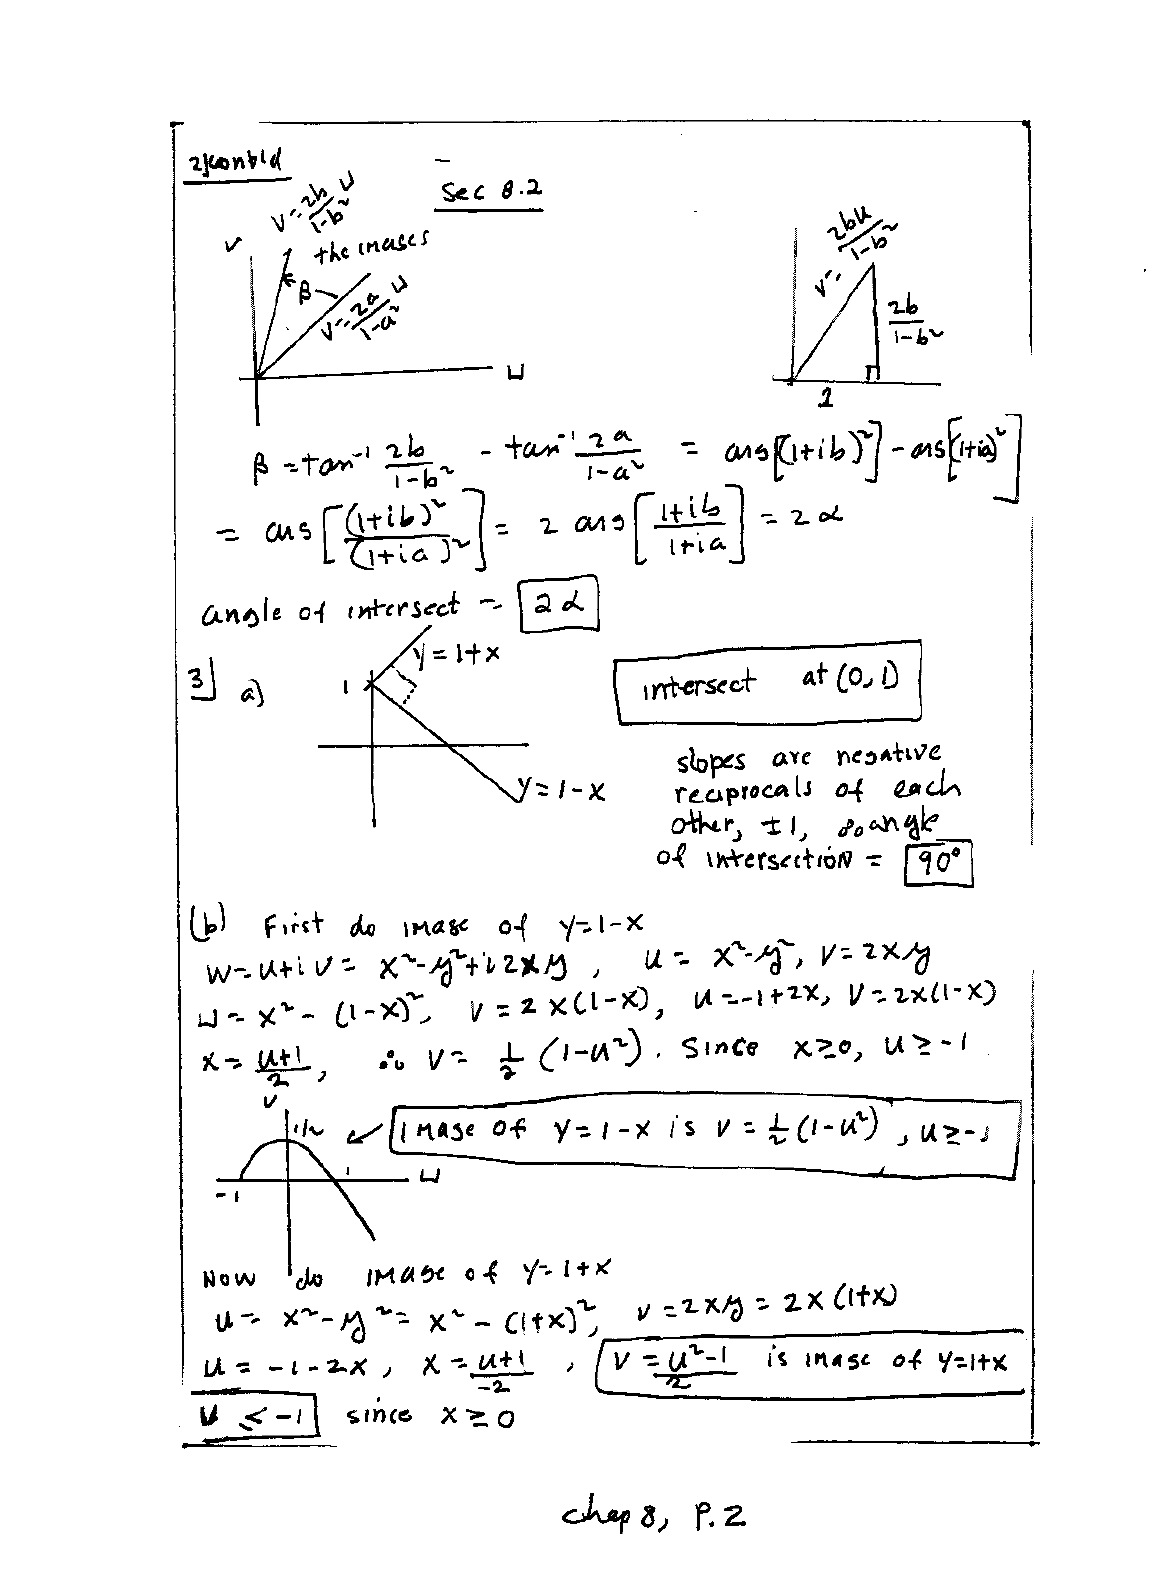 2) contd
Sec 8.2
v = 2b/(1-b²) u
the images
v
β
v = 2a/(1-a²) u
u
v = 2bu/(1-b²)
2b/(1-b²)
1
β = tan⁻¹ 2b/(1-b²) - tan⁻¹ 2a/(1-a²) = arg[(1+ib)²] - arg[(1+ia)²]
= arg[(1+ib)²/(1+ia)²] = 2 arg[(1+ib)/(1+ia)] = 2α
angle of intersect = 2α
3] a)
1
y = 1+x
intersect at (0,1)
y = 1-x
slopes are negative
reciprocals of each
other, ±1, ∴ angle
of intersection = 90°
(b) First do image of y=1-x
w = u+iv = x²-y²+i2xy, u = x²-y², v = 2xy
u = x² - (1-x)², v = 2x(1-x), u = -1+2x, v = 2x(1-x)
x = (u+1)/2, ∴ v = 1/2 (1-u²). Since x≥0, u ≥ -1
v
1/2
image of y = 1-x is v = 1/2 (1-u²), u ≥ -1
-1
1
u
Now do image of y = 1+x
u = x²-y² = x² - (1+x)², v = 2xy = 2x(1+x)
u = -1-2x, x = (u+1)/-2, v = (u²-1)/2 is image of y=1+x
u ≤ -1 since x ≥ 0
chap 8, P. 2